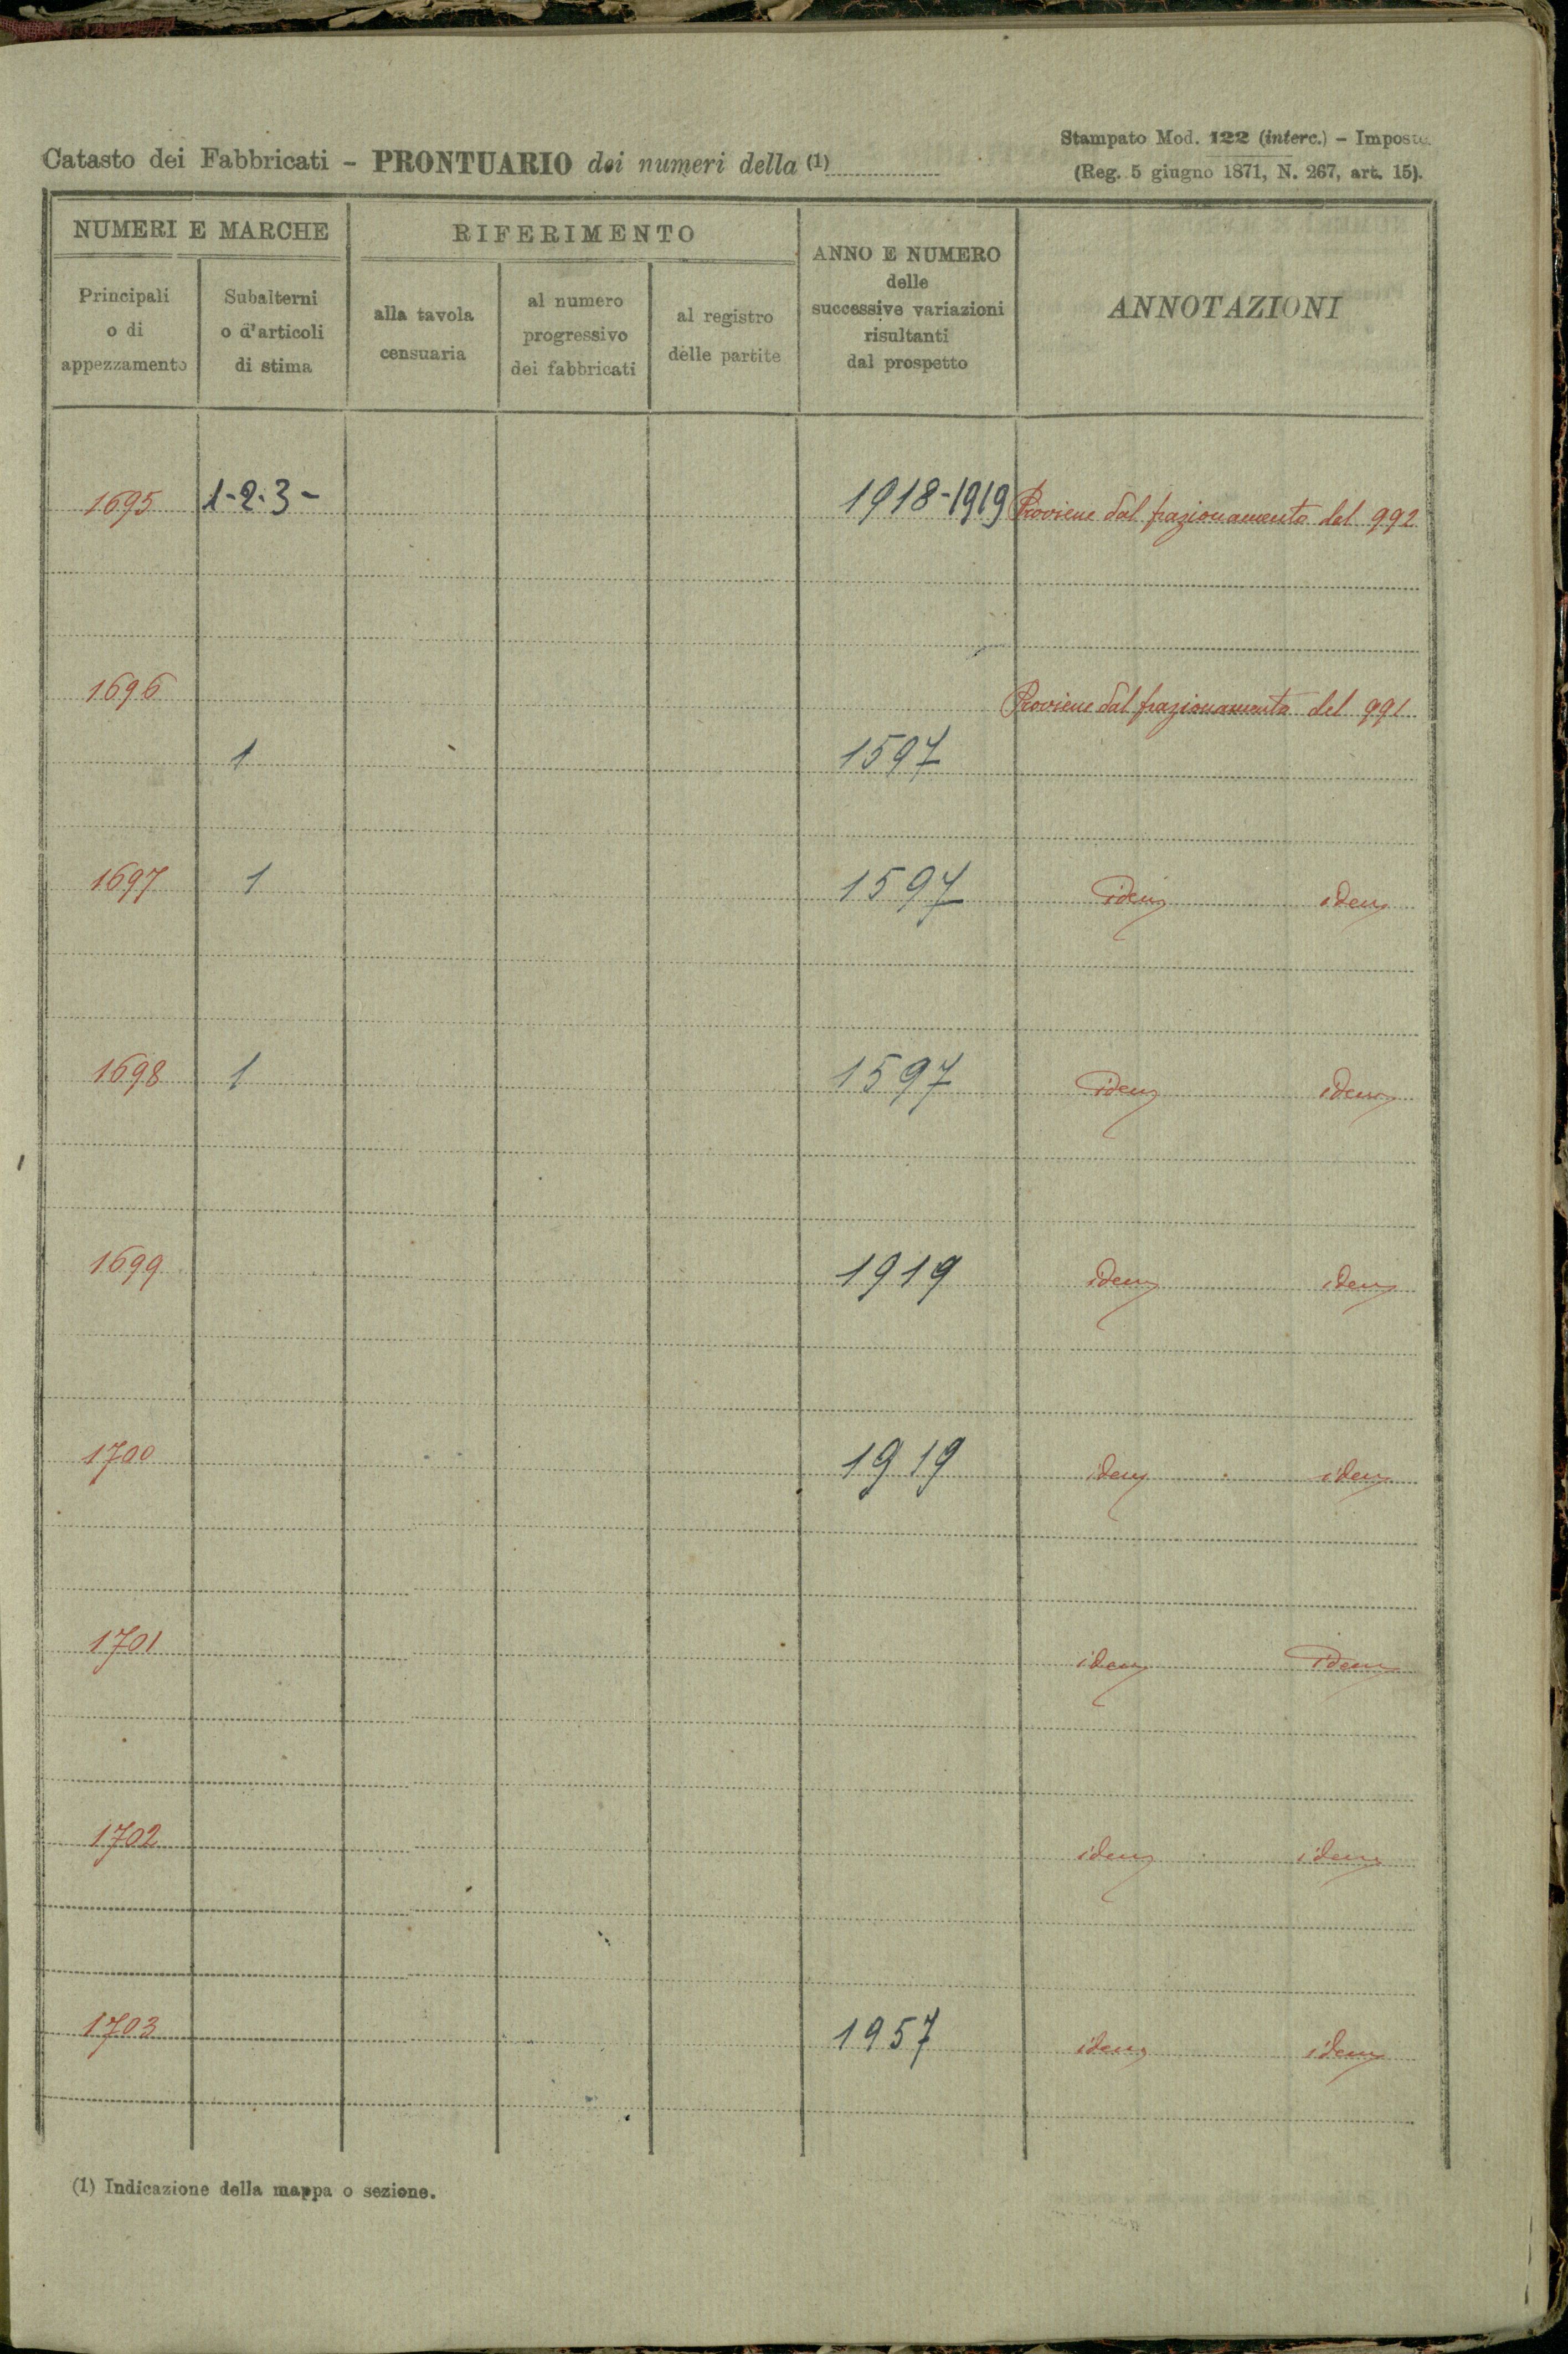 Catasto dei Fabbricati - PRONTUARIO dei numeri della (1)
Stampato Mod. 122 (interc.) - Imposte
(Reg. 5 giugno 1871, N. 267, art. 15).
NUMERI E MARCHE
RIFERIMENTO
ANNO E NUMERO
delle
successive variazioni
risultanti
dal prospetto
ANNOTAZIONI
Principali
o di
appezzamento
Subalterni
o d'articoli
di stima
alla tavola
censuaria
al numero
progressivo
dei fabbricati
al registro
delle partite
1695 1-2-3- 1918-1919 Proviene dal frazionamento del 992
1696 Proviene dal frazionamento del 991
1 1597
1697 1 1597 idem idem
1698 1 1597 idem idem
1699 1919 idem idem
1700 1919 idem idem
1701 idem idem
1702 idem idem
1703 1957 idem idem
(1) Indicazione della mappa o sezione.